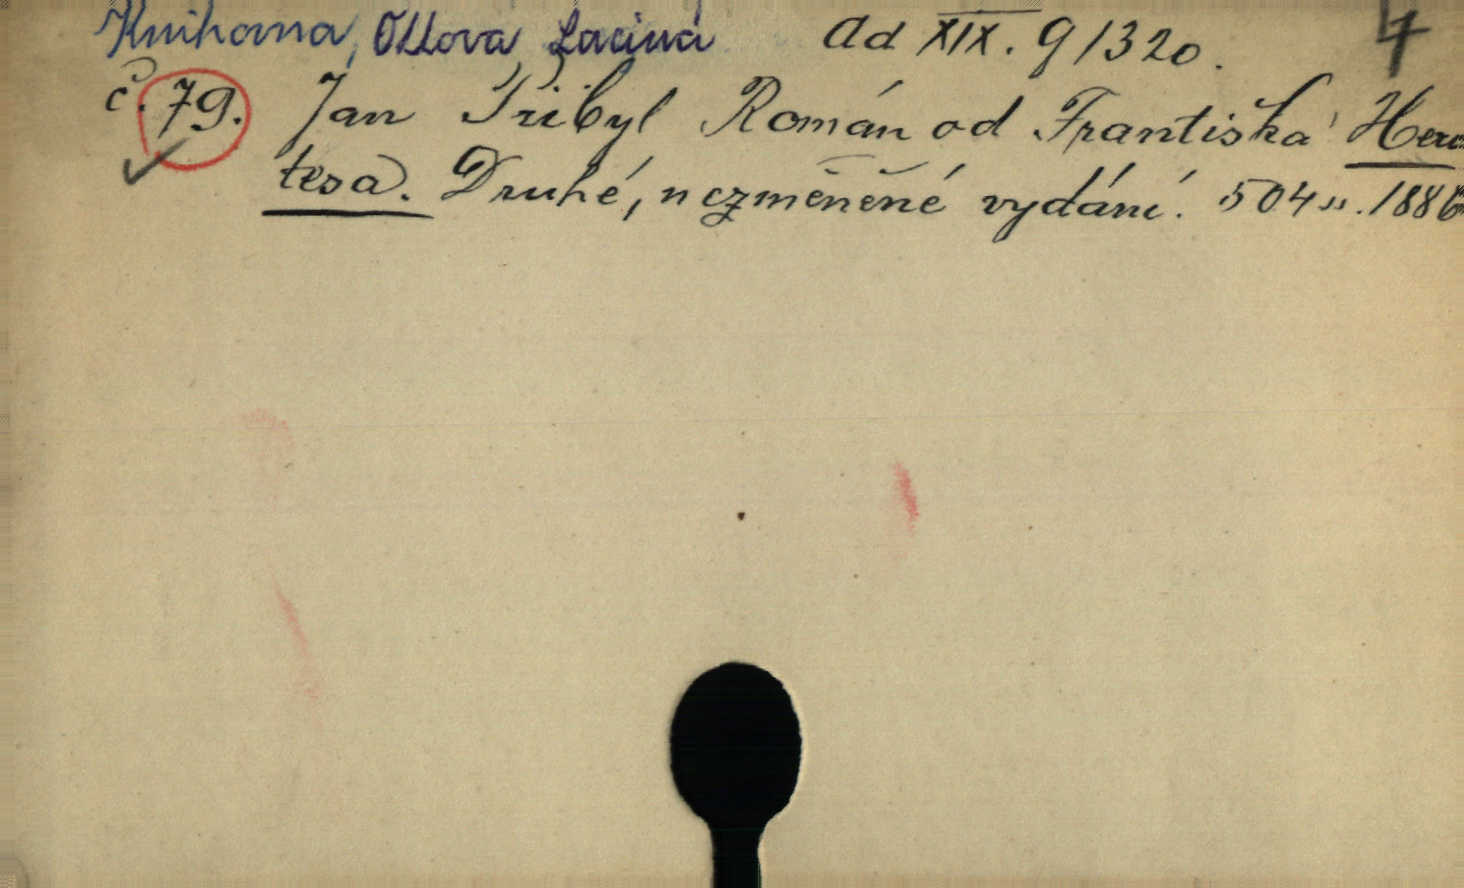 Knihovna, Ottova Laciná Ad XIX. G/320. 4
č. 79. Jan Přibyl Román od Františka Heri-
tesa. Druhé, nezměněné vydání. 504 s. 1886